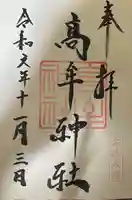 奉拝
高牟神社
令和元年十一月三日